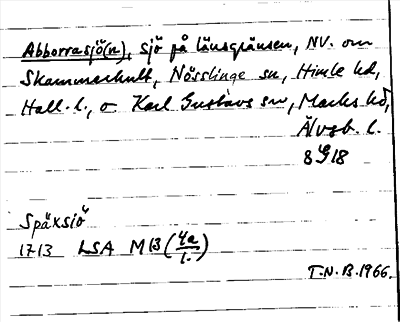 Abborrasjö(n), sjö på länsgränsen, NV. om
Skammarhult, Nösslinge sn, Himle hd,
Hall. l., o Karl Gustavs sn, Marks hd,
Älvsb. l.
8 G 18
Späksjö
1713 LSA M13 (4a/1.)
T.N.B. 1966.